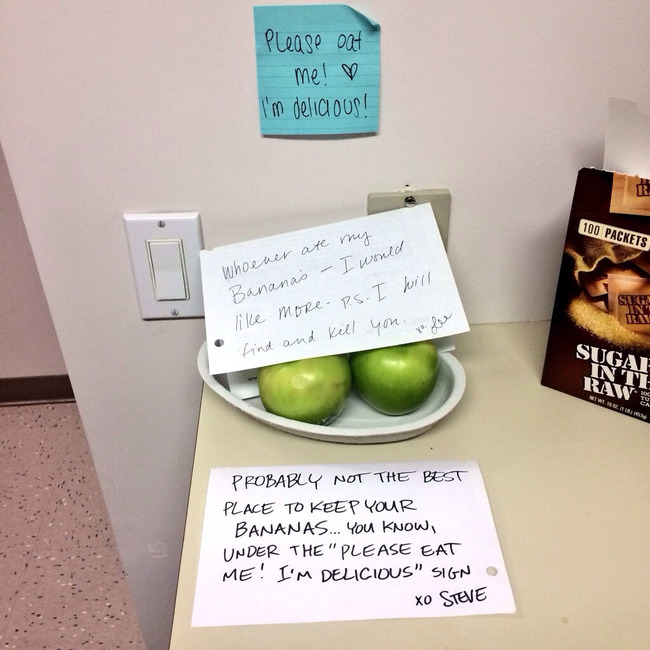 Please eat
me! ♡
I'm delicious!
Whoever ate my
Banana's — I would
like more. P.S. I will
find and kill you.
100 PACKETS
SUGAR
IN TH
RAW
NET WT. 16 OZ. (1 LB.) (453g)
PROBABLY NOT THE BEST
PLACE TO KEEP YOUR
BANANAS... YOU KNOW,
UNDER THE "PLEASE EAT
ME! I'M DELICIOUS" SIGN
XO STEVE